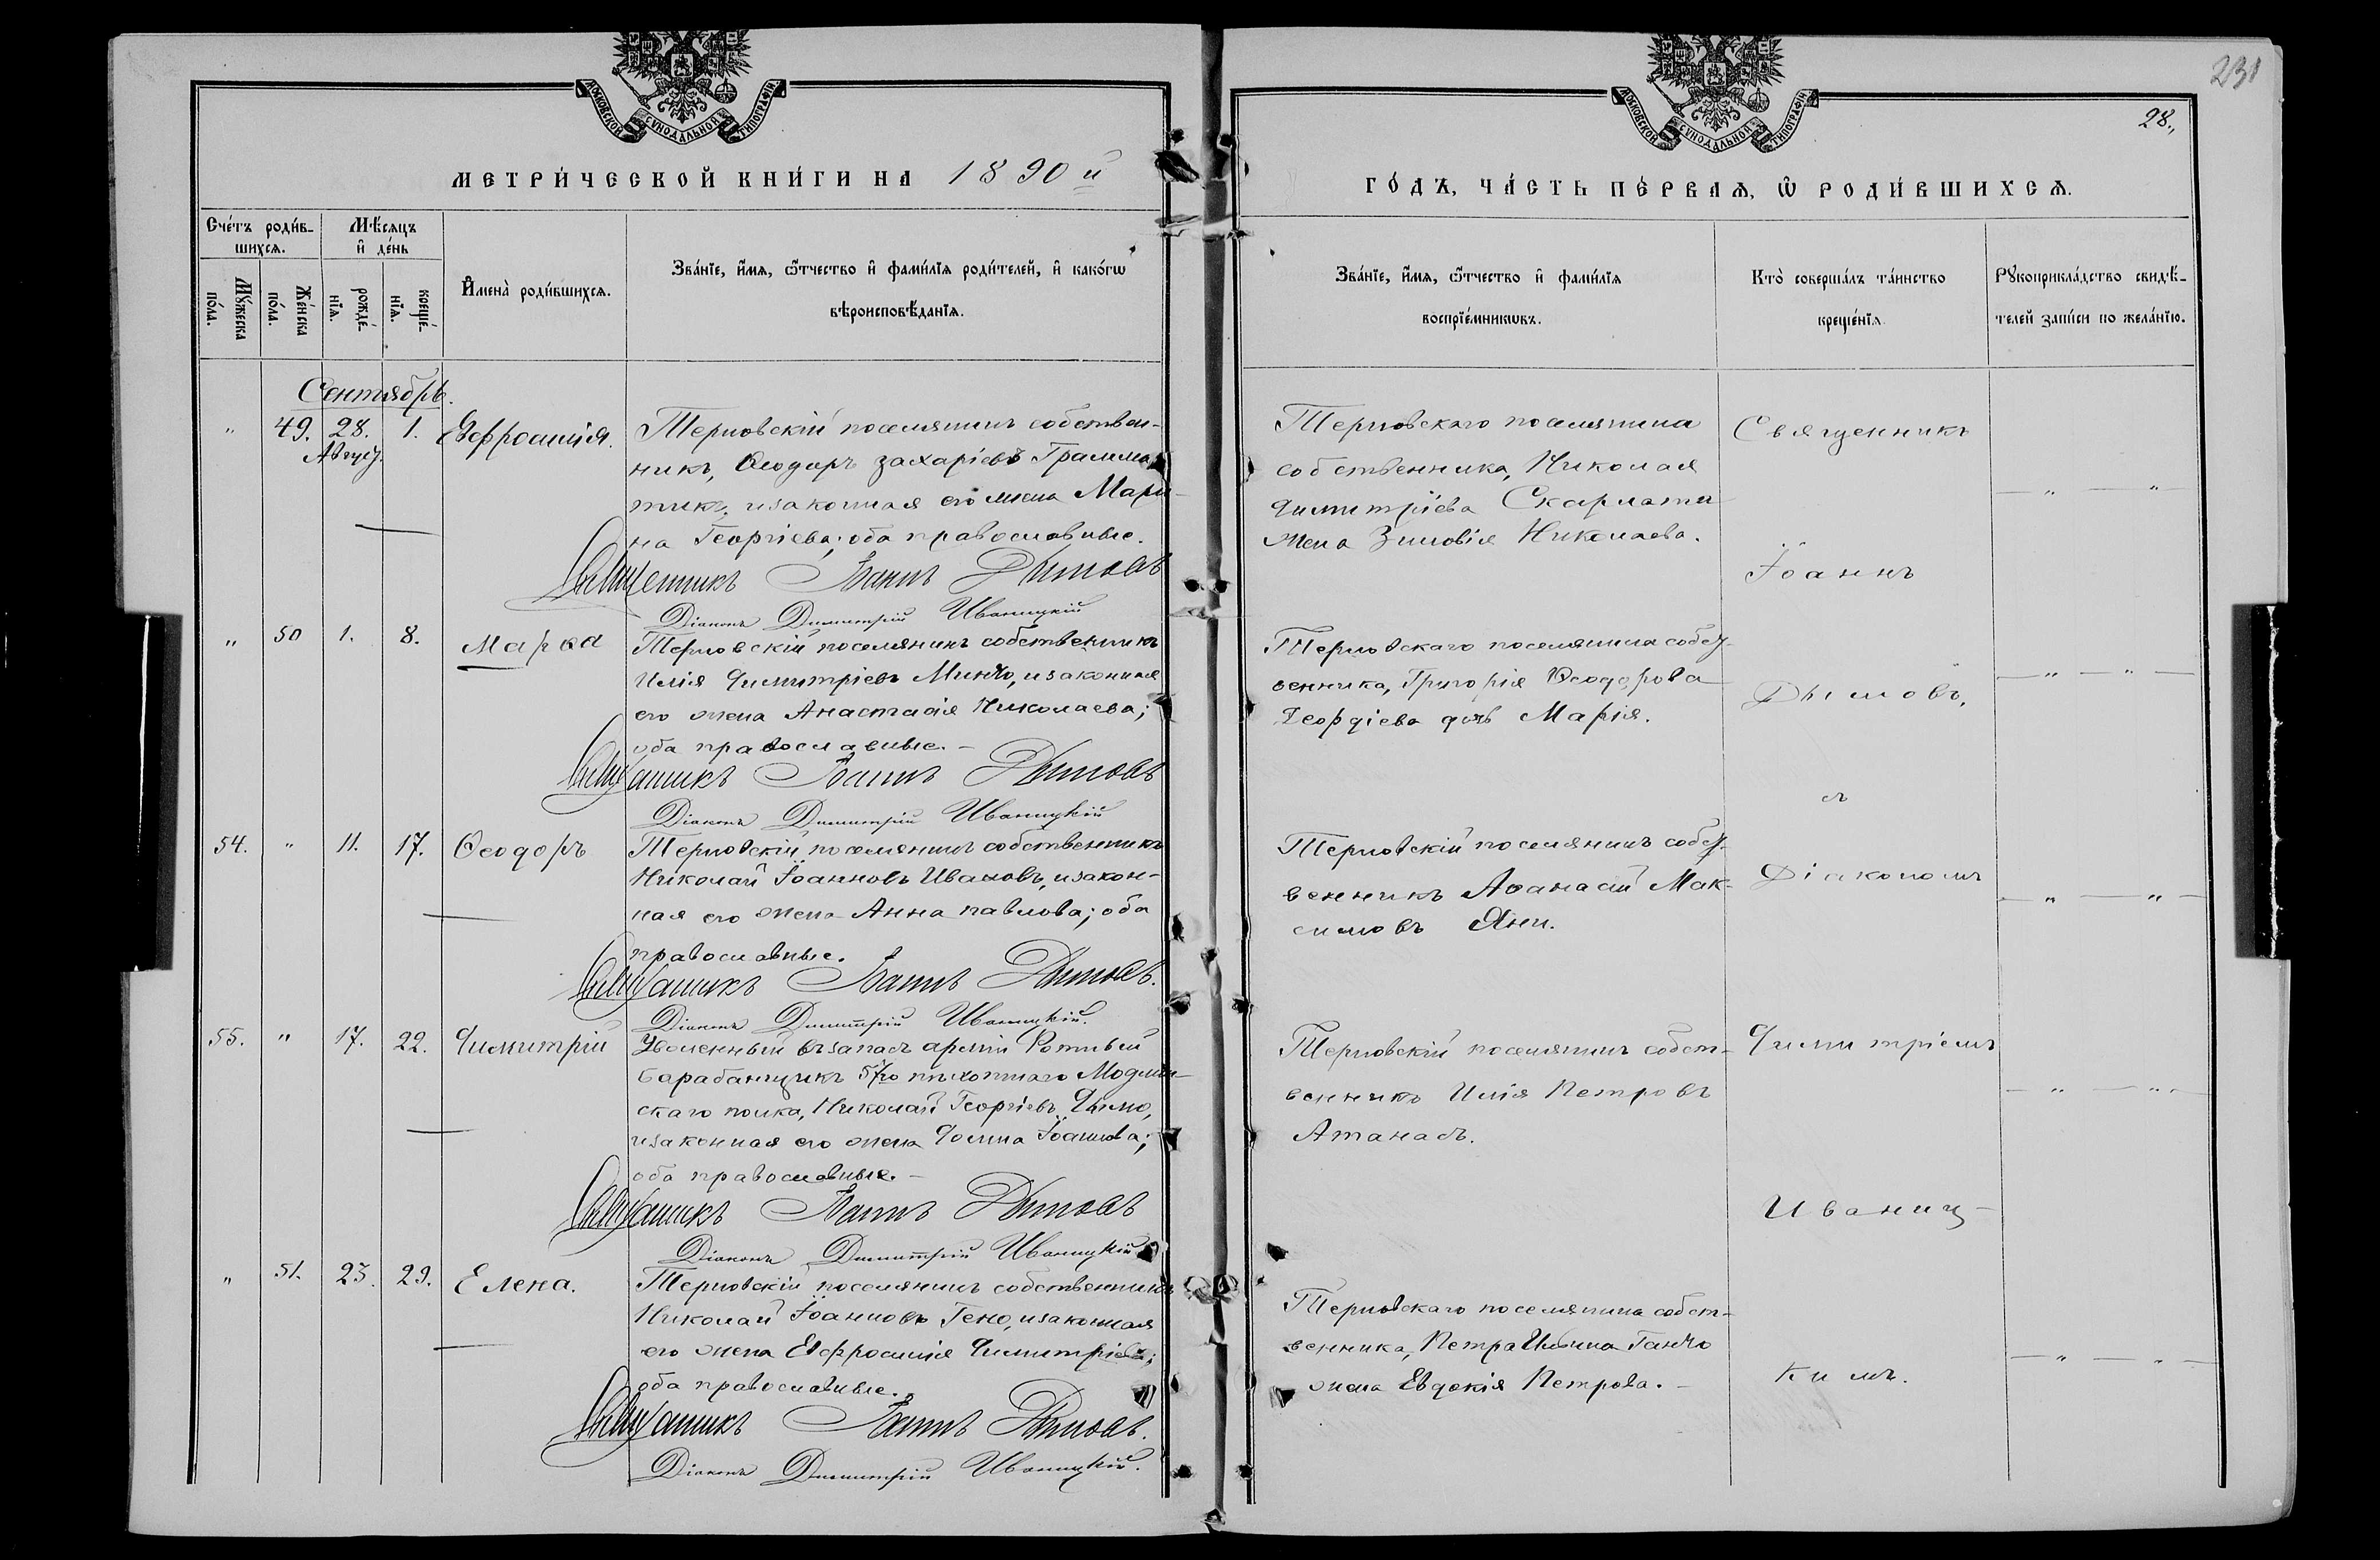 231
28.,
МОСКОВСКОЙ СѴНОДАЛЬНОЙ ТИПОГРАФІИ
МОСКОВСКОЙ СѴНОДАЛЬНОЙ ТИПОГРАФІИ
МЕТРИ́ЧЕСКОЙ КНИ́ГИ НА 1890 й
ГО́ДЪ, ЧА́СТЬ ПЕ́РВАѦ, Ѽ РОДИ́ВШИХСѦ.
Сче́тъ роди́в-
шихсѧ.
Мѣ́сѧцъ
и҆ де́нь
Мꙋ́жеска
по́ла.
Же́нска
по́ла.
рожде́-
нїѧ.
креще́-
нїѧ.
И҆мена̀ роди́вшихсѧ.
Зва́нїе, и҆́мѧ, ѻ҆́тчество и҆ фами́лїѧ роди́телей, и҆ како́гѡ
вѣроисповѣ́данїѧ.
Зва́нїе, и҆́мѧ, ѻ҆́тчество и҆ фами́лїѧ
воспрїе́мникѡвъ.
Кто̀ соверша́лъ та́инство
креще́нїѧ
Рꙋкоприкла́дство свидѣ́-
телей за́писи по жела́нїю.
Сентябрь.
" 49. 28. 1. Евфросинія.
Август.
Терновскій поселянинъ собствен-
никъ, Ѳеодоръ Захаріевъ Грамма-
тикъ, и законная его жена Мари-
на Георгіева; оба православные.
Священникъ Іоаннъ Дымовъ
Діаконъ Димитрій Иваницкій
Терновскаго поселянина
собственника, Николая
Димитріева Скарлати
жена Зиновія Николаева.
" 50 1. 8. Марѳа
Терновскій поселянинъ собственникъ
Илія Димитріевъ Минчо, и законная
его жена Анастасія Николаева;
оба православные. –
Священникъ Іоаннъ Дымовъ
Діаконъ Димитрій Иваницкій
Терновскаго поселянина собст-
венника, Григорія Ѳеодорова
Геордіева дочь Марія.
54. " 11. 17. Ѳеодоръ
Терновскій поселянинъ собственникъ
Николай Іоанновъ Ивановъ, и закон-
ная его жена Анна Павлова; оба
православные.
Священникъ Іоаннъ Дымовъ.
Діаконъ Димитрій Иваницкій.
Терновскій поселянинъ собст-
венникъ Аѳанасій Мак-
симовъ Яни.
55. " 17. 22. Димитрій
Уволенный въ запасъ арміи Ротный
барабанщикъ 57го пѣхотнаго Модлин-
скаго полка, Николай Георгіевъ Дымо,
и законная его жена Домна Іоаннова;
оба православные. –
Священникъ Іоаннъ Дымовъ
Діаконъ Димитрій Иваницкій
Терновскій поселянинъ собст-
венникъ Илія Петровъ
Атанасъ.
" 51. 23. 29. Елена.
Терновскій поселянинъ собственникъ
Николай Іоанновъ Гено, и законная
его жена Евфросинія Димитріева;
оба православные.
Священникъ Іоаннъ Дымовъ.
Діаконъ Димитрій Иваницкій.
Терновскаго поселянина собст-
венника, Петра Ильина Ганчо
жена Евдокія Петрова. –
Священникъ
Іоаннъ
Дымовъ,
съ
Діакономъ
Димитріемъ
Иваниц-
кимъ.